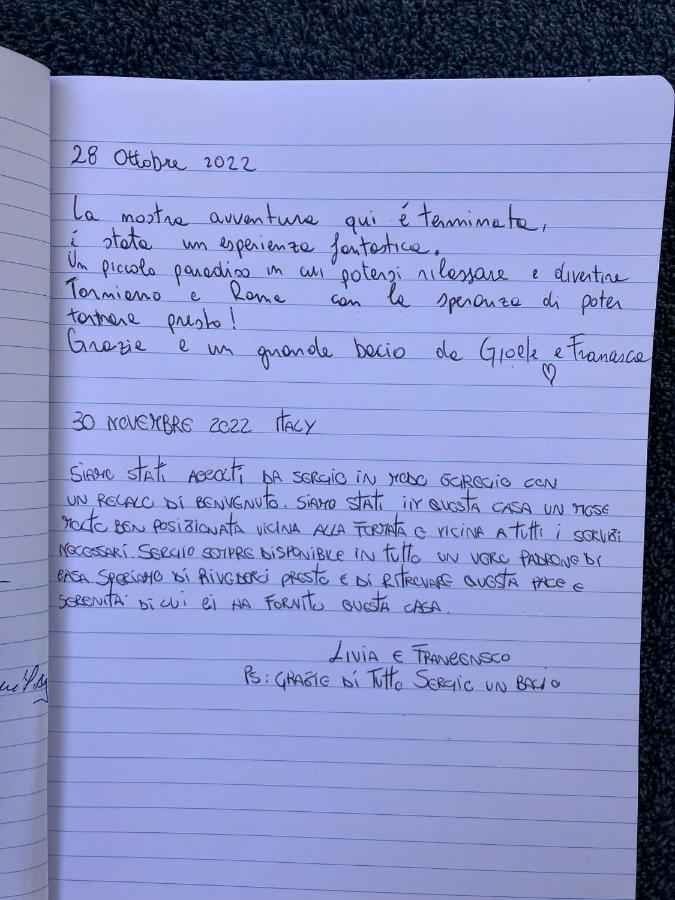 28 Ottobre 2022
La nostra avventura qui é terminata,
é stata un esperienza fantastica.
Un piccolo paradiso in cui potersi rilassare e divertire
Torniamo a Roma con la speranza di poter
tornare presto!
Grazie e un grande bacio da Gioele e Francesca
♡
30 NOVEMBRE 2022 ITALY
SIAMO STATI ACCOLTI DA SERGIO IN MODO EGREGIO CON
UN REGALO DI BENVENUTO. SIAMO STATI IN QUESTA CASA UN MESE
MOLTO BEN POSIZIONATA VICINA ALLA FERMATA E VICINA A TUTTI I SERVIZI
NECESSARI. SERGIO SEMPRE DISPONIBILE IN TUTTO UN VERO PADRONE DI
CASA SPERIAMO DI RIVEDERCI PRESTO E DI RITROVARE QUESTA PACE E
SERENITÀ DI CUI CI HA FORNITO QUESTA CASA.
LIVIA E FRANCENSCO
PS: GRAZIE DI TUTTO SERGIO UN BACIO